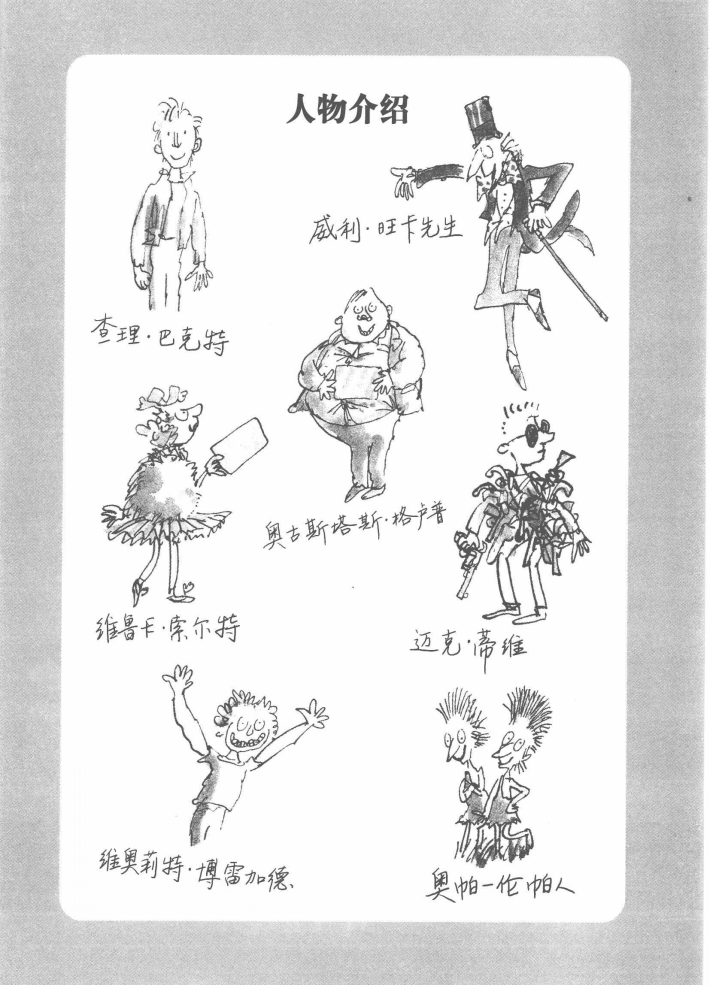 人物介绍
威利·旺卡先生
查理·巴克特
奥古斯塔斯·格卢普
维鲁卡·索尔特
迈克·蒂维
维奥莉特·博雷加德
奥帕一伦帕人